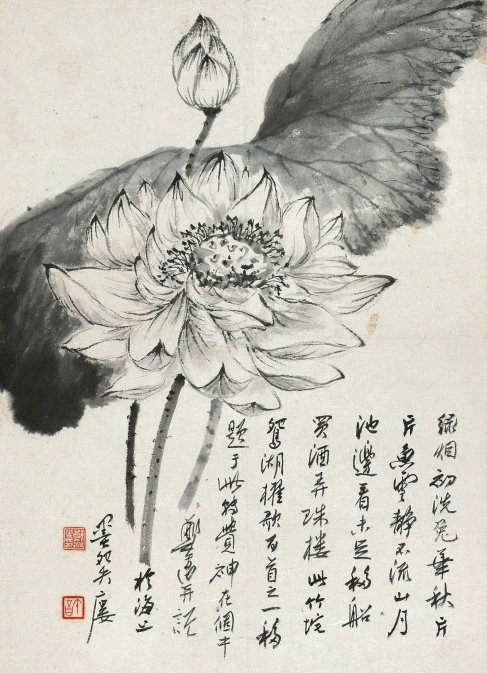 緑烟初洗兔華秋片
片魚雲靜不流山月
池邊看未足移船
買酒弄珠樓此竹垞
鴛湖櫂歌百首之一移
題于此特費神在個中
并記
於海上